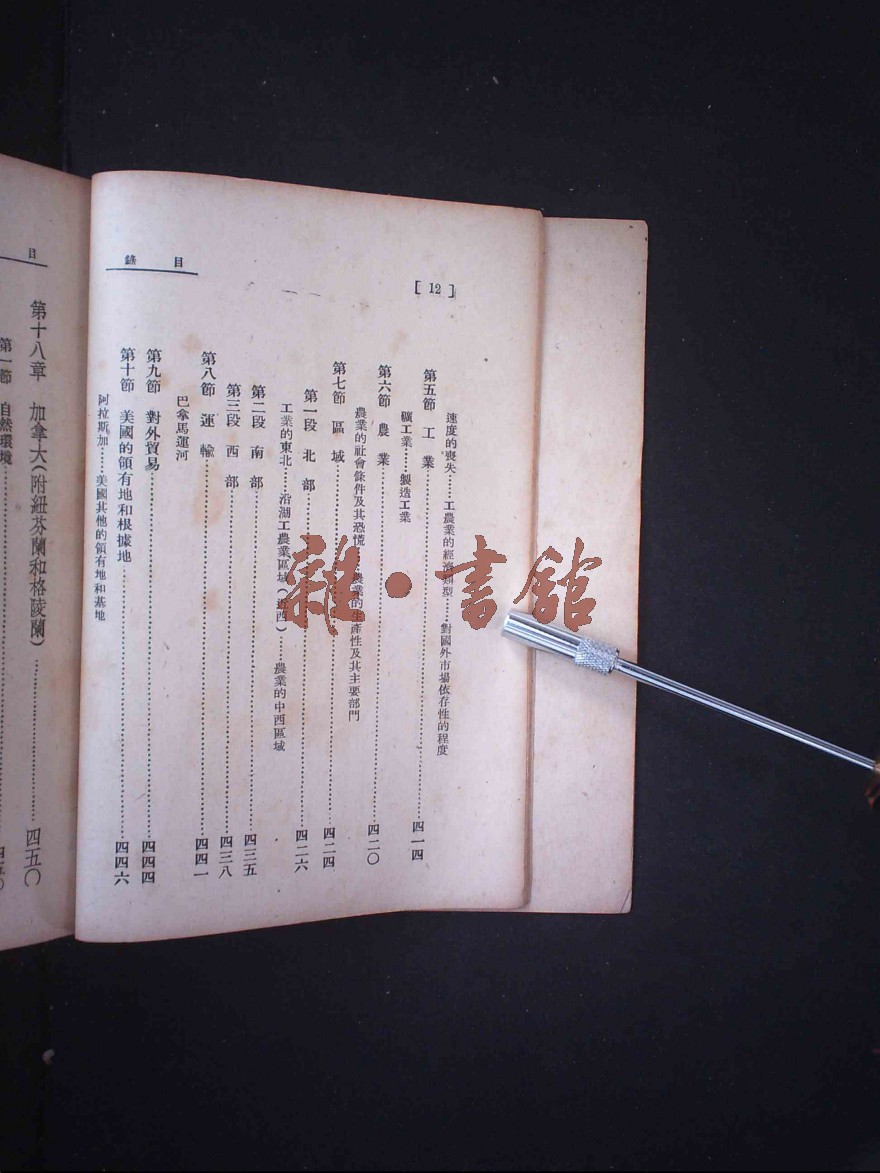 目錄
[12]
速度的喪失……工農業的經濟類型……對國外市場依存性的程度
第五節 工業……四一四
礦工業……製造工業
第六節 農業……四二〇
農業的社會條件及其恐慌……農業的生產性及其主要部門
第七節 區域……四二四
第一段 北部……四二六
工業的東北……沿湖工農業區域(近西)……農業的中西區域
第二段 南部……四三五
第三段 西部……四三八
第八節 運輸……四四一
巴拿馬運河
第九節 對外貿易……四四四
第十節 美國的領有地和根據地……四四六
阿拉斯加……美國其他的領有地和基地
目
第十八章 加拿大(附紐芬蘭和格陵蘭)……四五〇
第一節 自然環境……四五〇
雜·書館